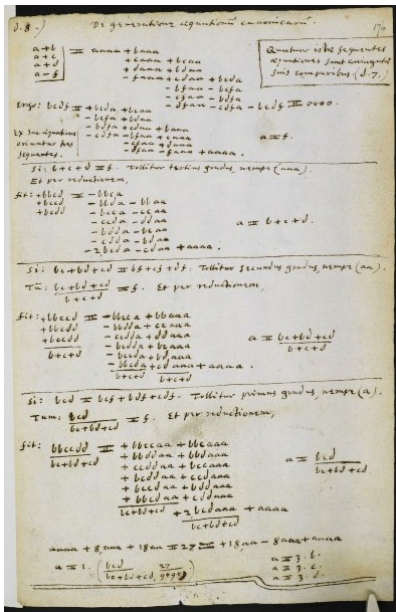 d.8.) De generatione æquationum canonicarum. 170
a+b
a+c
a+d
a-f
= aaaa + baaa
+ caaa + bcaa
+ daaa + bdaa
- faaa + cdaa + bcda
- bfaa - bcfa
- cfaa - bdfa
- dfaa - cdfa - bcdf = 0000.
Quatuor istæ sequentes
æquationes sunt
suis comparibus (d.7.)
Ergo: bcdf = + bcda + bcaa
- bcfa + bdaa
- bdfa + cdaa + baaa
- cdfa - bfaa + caaa
- cfaa + daaa
- dfaa - faaa + aaaa.
a = f.
Ex hac æquatione
oriuntur tres
sequentes.
Si: b+c+d = f. Tollitur tertius gradus, nempe (aaa).
Et per reductionem,
fit: +bbcd = - bbca
+bccd - bbda - bbaa
+bcdd - bcca - ccaa
- ccda - ddaa
- bdda - bcaa
- cdda - bdaa
- 2bcda - cdaa + aaaa.
a = b+c+d.
Si: bc+bd+cd = bf+cf+df. Tollitur secundus gradus, nempe (aa).
Tum: bc+bd+cd = f. Et per reductionem,
b+c+d
fit: +bbccd = - bbcca + bbaaa
+bbcdd - bbdda + ccaaa
+bccdd - ccdda + ddaaa
b+c+d - bccda + bdaaa
a = bc+bd+cd
b+c+d
b+c+d b+c+d
Si: bcd = bcf + bdf + cdf. Tollitur primus gradus, nempe (a).
Tum: bcd = f. Et per reductionem,
bc+bd+cd
fit: bbccdd = + bbccaa + bbcaaa
bc+bd+cd + bbddaa + bbdaaa
+ ccddaa + bccaaa
+ bccdaa + ccdaaa
+ bcddaa + bddaaa
+ bbcdaa + cddaaa
bc+bd+cd + 2bcdaaa + aaaa
bc+bd+cd
a = bcd
bc+bd+cd
aaaa + 8aaa + 18aa = 27 = +18aa - 8aaa + aaaa
a = 1. (bcd 27
bc+bd+cd, 9+9+9)
a = 3. b.
a = 3. c.
a = 3. d.